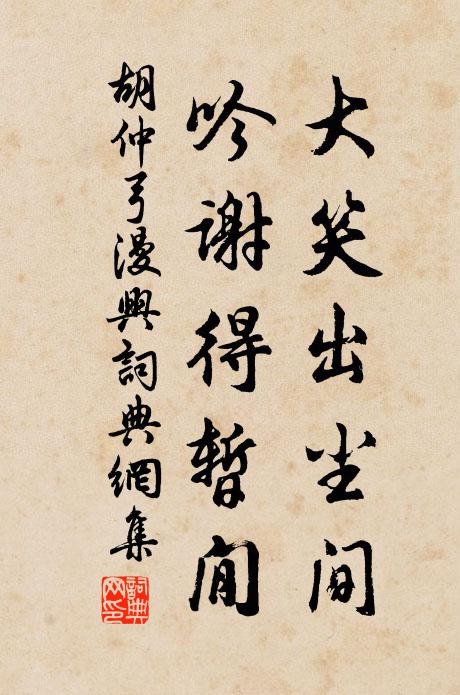 大笑出尘間
吟謝得暫閒
胡仲弓漫興詞典網集
詞典
网印